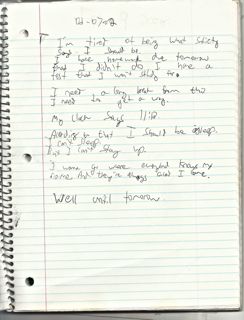 I'm tired of being what society
says I should be.
I have homework due tomorrow
that I didn't do I have a
test that I won't study for.
I need a long break from this
I need to get a way.
My clock says 11:12
According to that I should be asleep.
I can't sleep.
But I can't stay up.
I wanna go where everybody knows my
name. And they're glad I came.
Well until tomorrow.